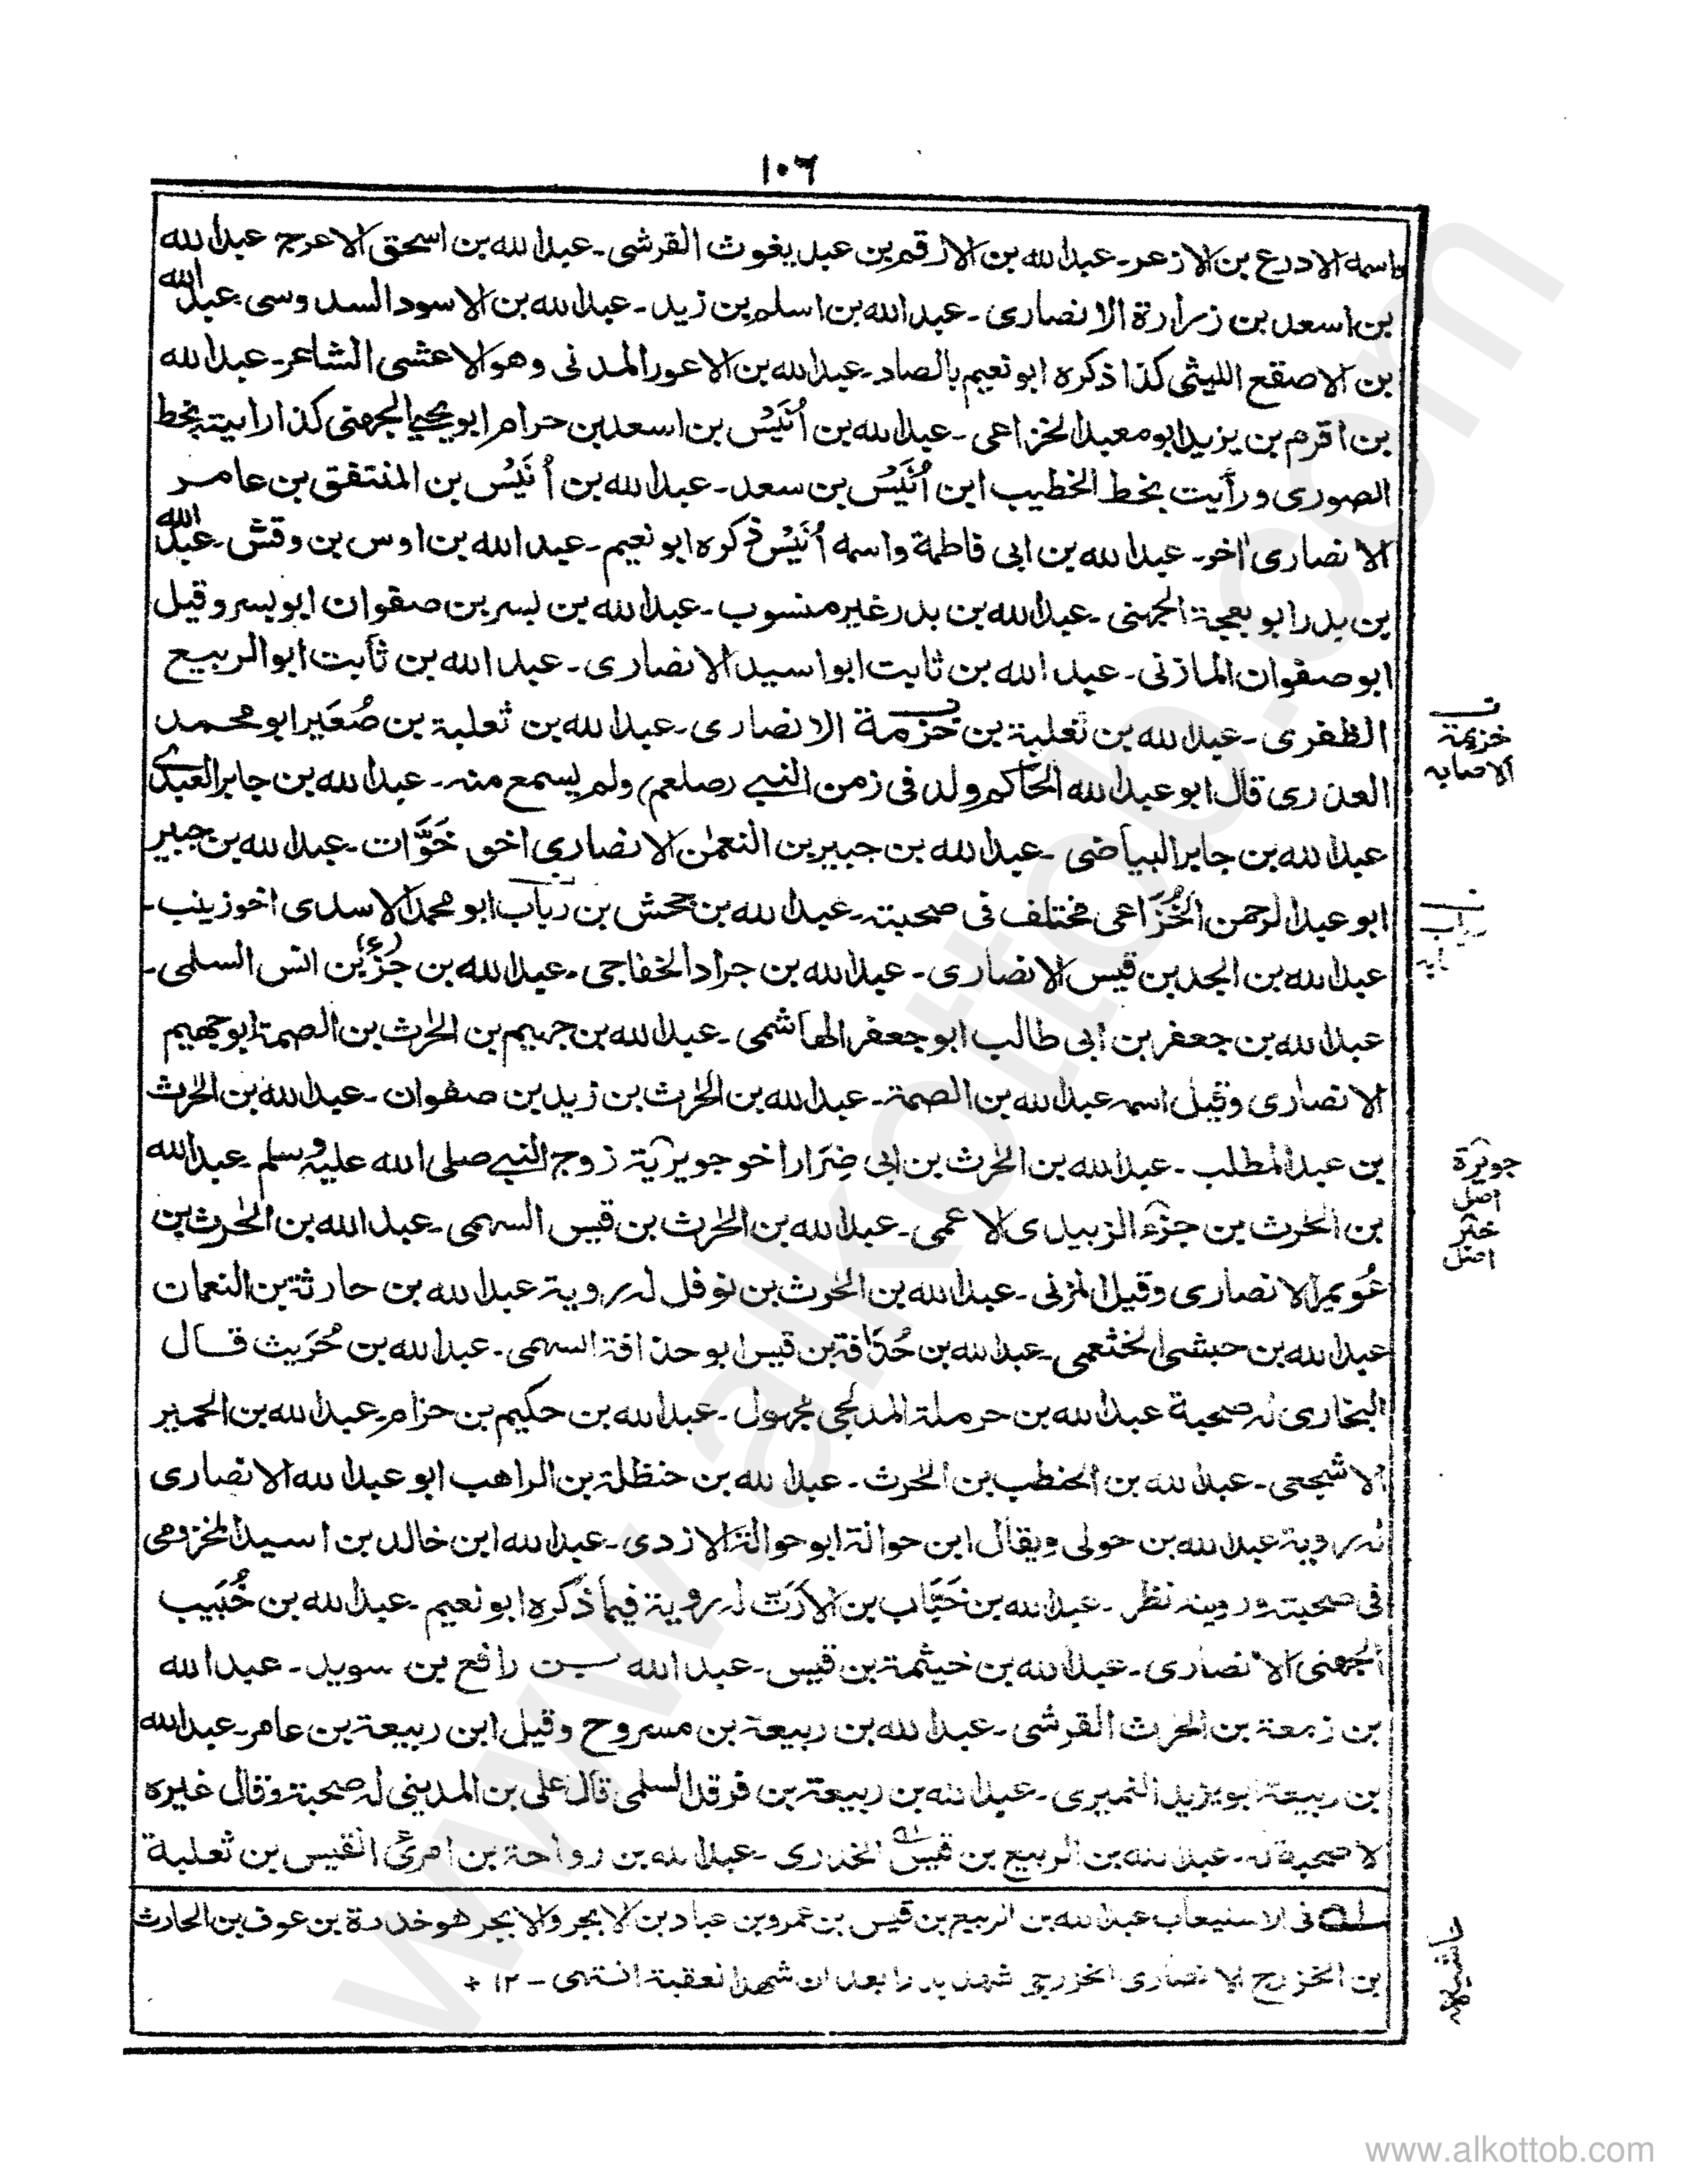 ١٠٦
واسمه الادرع بن الازعر۔ عبد الله بن الارقم بن عبد يغوث القرشى۔ عبد الله بن اسحق الاعرج عبد الله
بن اسعد بن زرارة الانصارى۔ عبد الله بن اسلم بن زيد۔ عبد الله بن الاسود السدوسى عبد الله
بن الاصقع الليثى كذا ذكره ابو نعيم بالصاد۔ عبد الله بن الاعور المدنى وهو الاعشى الشاعر۔ عبد الله
بن اقرم بن يزيد ابو معبد الخزاعى۔ عبد الله بن اُنَيْس بن اسعد بن حرام ابو يحيى الجهنى كذا رايته بخط
الصورى ورأيت بخط الخطيب ابن اُنَيْس بن سعد۔ عبد الله بن اُنَيْس بن المنتفق بن عامر
الانصارى اخو۔ عبد الله بن ابى فاطمة واسمه اُنَيْس ذكره ابو نعيم۔ عبد الله بن اوس بن وقش۔ عبد الله
بن بدر ابو بعجة الجهنى۔ عبد الله بن بدر غير منسوب۔ عبد الله بن بسر بن صفوان ابو بسر وقيل
ابو صفوان المازنى۔ عبد الله بن ثابت ابو اسيد الانصارى۔ عبد الله بن ثابت ابو الربيع
الظفرى۔ عبد الله بن ثعلبة بن خزمة الانصارى۔ عبد الله بن ثعلبة بن صُعَير ابو محمد
العذرى قال ابو عبد الله الحاكم ولد فى زمن النبى (صلعم) ولم يسمع منه۔ عبد الله بن جابر العبدى
عبد الله بن جابر البياضى۔ عبد الله بن جبير بن النعمٰن الانصارى اخو خَوَّات۔ عبد الله بن جبير
ابو عبد الرحمن الخُزَاعى مختلف فى صحبته۔ عبد الله بن جحش بن رياب ابو محمد الاسدى اخو زينب۔
عبد الله بن الجد بن قيس الانصارى۔ عبد الله بن جراد الخفاجى۔ عبد الله بن جَزْ(ء) بن انس السلمى۔
عبد الله بن جعفر بن ابى طالب ابو جعفر الهاشمى۔ عبد الله بن جهيم بن الحٰرث بن الصمة ابو جهيم
الانصارى وقيل اسمه عبد الله بن الصمة۔ عبد الله بن الحٰرث بن زيد بن صفوان۔ عبد الله بن الحٰرث
بن عبد المطلب۔ عبد الله بن الحٰرث بن ابى ضِرَار اخو جويرية زوج النبى صلى الله عليه وسلم عبد الله
بن الحٰرث بن جزء الزبيدى الاعمى۔ عبد الله بن الحٰرث بن قيس السهمى۔ عبد الله بن الحٰرث بن
عُويمر الانصارى وقيل المزنى۔ عبد الله بن الحٰرث بن نوفل له رؤية عبد الله بن حارثة بن النعمان
عبد الله بن حبشى الخثعمى۔ عبد الله بن حُذَافة بن قيس ابو حذافة السهمى۔ عبد الله بن حُرَيث قال
البخارى له صحبة عبد الله بن حرملة المدلجى مجهول۔ عبد الله بن حكيم بن حزام۔ عبد الله بن الحمير
الاشجعى۔ عبد الله بن الحنطب بن الحٰرث۔ عبد الله بن حنظلة بن الراهب ابو عبد الله الانصارى
له رؤية عبد الله بن حولى ويقال ابن حوالة ابو حوالة الازدى۔ عبد الله ابن خالد بن اسيد المخزومى
فى صحبته ورويته نظر۔ عبد الله بن خَبَّاب بن الاَرَتّ له رؤية فيما ذكره ابو نعيم۔ عبد الله بن خُبَيب
الجهنى الانصارى۔ عبد الله بن خيثمة بن قيس۔ عبد الله بن رافع بن سويد۔ عبد الله
بن زمعة بن الحٰرث القرشى۔ عبد الله بن ربيعة بن مسروح وقيل ابن ربيعة بن عامر۔ عبد الله
بن ربيعة ابو يزيد النميرى۔ عبد الله بن ربيعة بن فرقد السلمى قال على بن المدينى له صحبة وقال غيره
لا صحبة له۔ عبد الله بن الربيع بن قيس الخدرى۔ عبد الله بن رواحة بن امرئ القيس بن ثعلبة
له فى الاستيعاب عبد الله بن الربيع بن قيس بن عمرو بن عباد بن الابجر والابجر هو خدرة بن عوف بن الحارث
بن الخزرج الانصارى الخزرجى شهد بدرا بعد ان شهد العقبة انتهى - ١٢ +
ن
خزيمة
الاصابه
جويرة
اصل
اصل
حاشيه
www.alkottob.com
www.alkottob.com